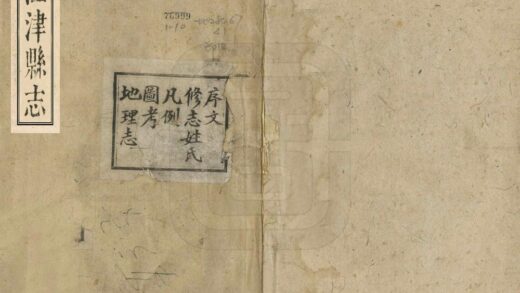 津縣志
序文
修志姓氏
凡例
圖考
地理志
76999
1-10